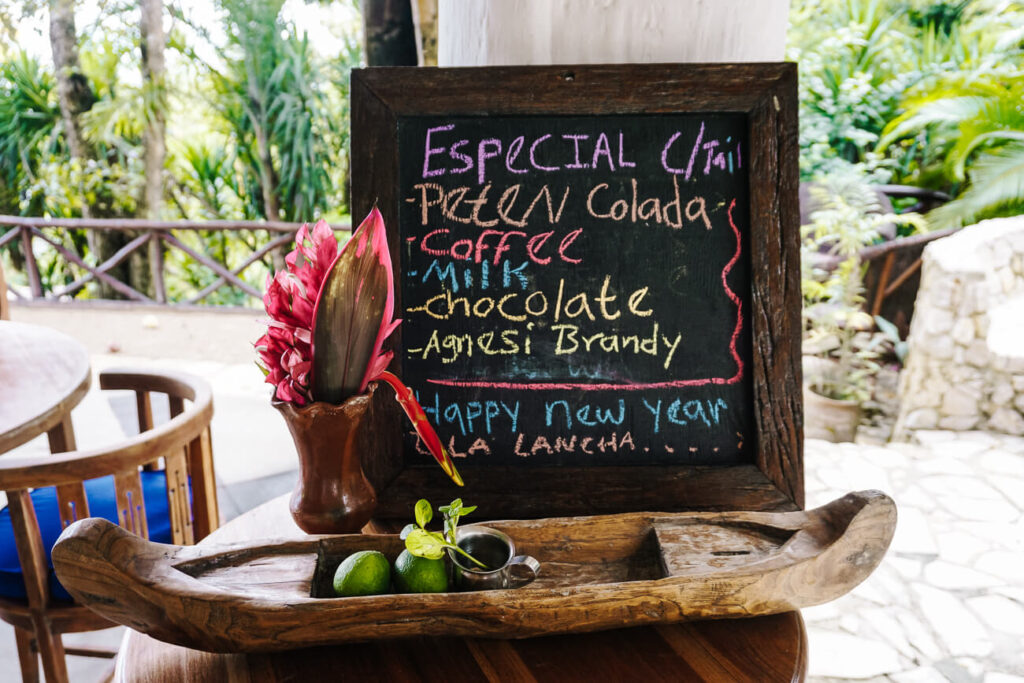 Especial c/Tail
-PETEN Colada-
-Coffee
-Milk
-chocolate
-Agnesi Brandy
Happy new year
LA LANCHA. . . .